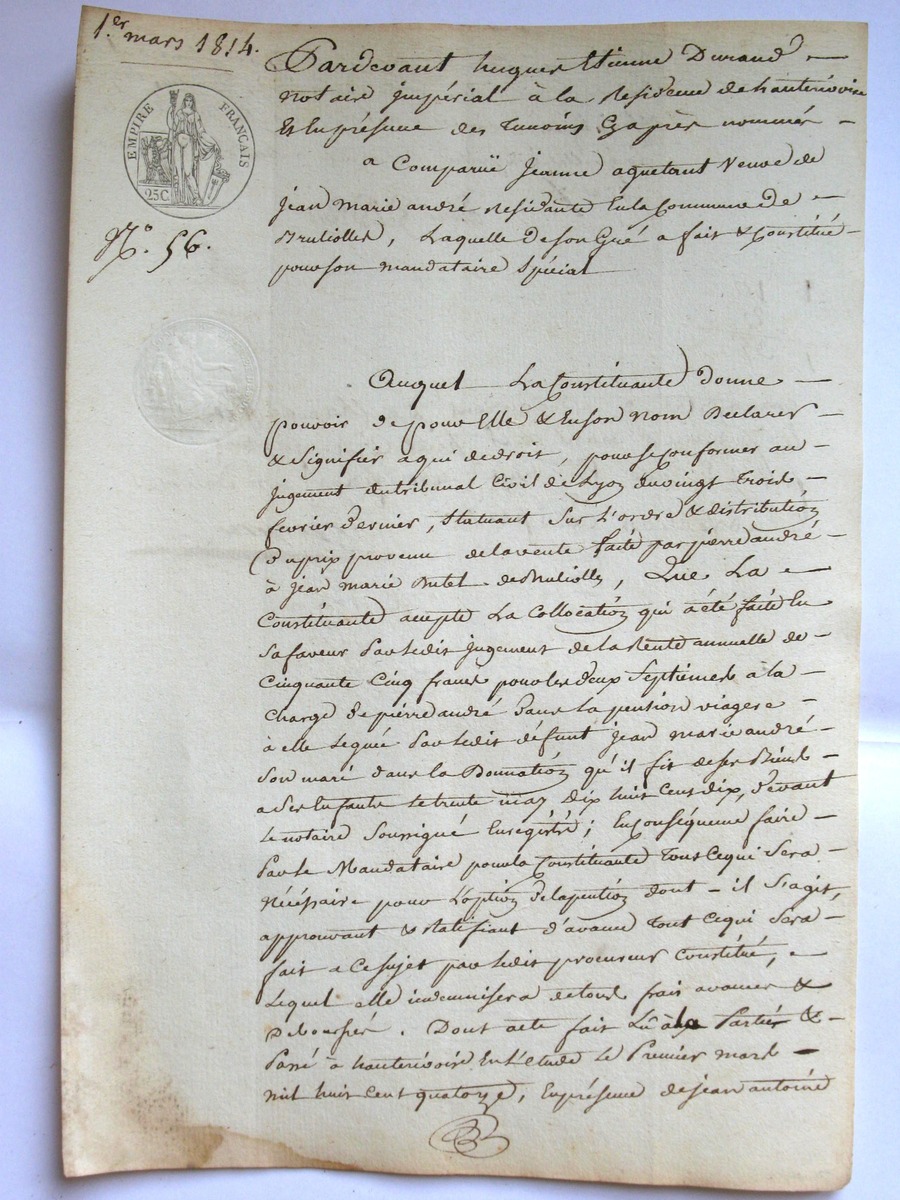 1.er mars 1814.
EMPIRE FRANÇAIS
25C
N.o 56.
Pardevant hugues Etienne Durand
notaire impérial à la Residence de hauterivoire
Et En présence des Temoins Cy après nommés
a Comparüe jeanne aquetant Veuve de
jean marie andré Residante En la Commune de
Brullioles, Laquelle de son Gré a fait & Constitué
pour son mandataire spécial
Auquel La Constituante donne
pouvoir de pour Elle & En son nom Déclarer
& Signifier a qui de droit, pour se Conformer au
jugement du tribunal Civil de Lyon du vingt Trois
fevrier dernier, statuant sur L'ordre & distribution
du prix provenu de la vente faite par pierre andré
à jean marie de Brullioles, Que La
Constituante accepte La Collocation qui a été faite En
sa faveur Par Ledit jugement de la Rente annuelle de
Cinquante Cinq francs pour les deux Septièmes à la
Charge de pierre andré dans la pension viagere
à elle Leguée Par Ledit défunt jean marie andré
son mari dans la Donnation qu'il fit de ses Biens
a ses Enfants le trente may Dix huit Cent dix, devant
Le notaire soussigné Enregistré; En Conséquence faire
Par Le Mandataire pour la Constituante Tous Ce qui Sera
Nécessaire pour L'option de la pention dont il s'agit,
approuvant & Ratifiant d'avance Tout Ce qui Sera
fait a Ce sujet par Ledit procureur Constitué,
Lequel elle indemnisera de tous frais avances &
Deboursés. Dont acte fait Lû à la Partie &
Passé à hauterivoire En L'étude Le Premier mars
mil huit Cent quatorze, En présence de jean antoine